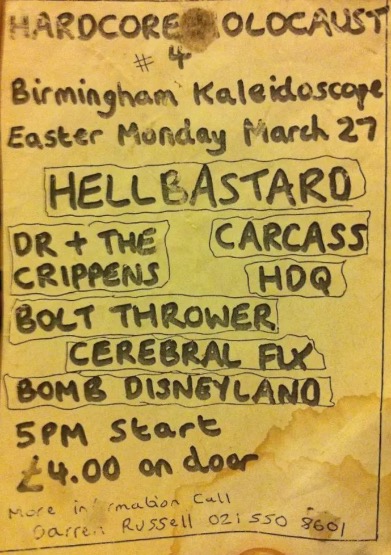 HARDCORE HOLOCAUST
# 4
Birmingham Kaleidoscope
Easter Monday March 27
HELLBASTARD
DR + THE CRIPPENS
CARCASS
HDQ
BOLT THROWER
CEREBRAL FIX
BOMB DISNEYLAND
5PM Start
£4.00 on door
More information Call
Darren Russell 021 550 8601